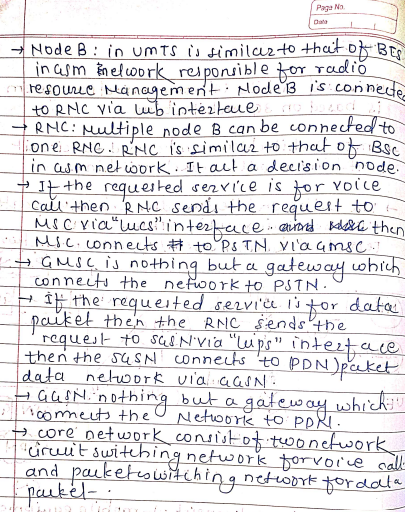 Page No.
Date
→ Node B : in UMTS is similar to that of BTS
in GSM network responsible for radio
resource Management. Node B is connecte
to RNC via Iub interface
→ RNC: Multiple node B can be connected to
one RNC. RNC is similar to that of BSC
in GSM network. It act a decision node.
→ If the requested service is for voice
call then RNC sends the request to
MSC via "Iucs" interface and then
MSC connects to PSTN via GMSC.
→ GMSC is nothing but a gateway which
connects the network to PSTN.
→ If the requested service is for data
packet then the RNC sends the
request to SGSN via "Iups" interface
then the SGSN connects to (PDN) packet
data network via GGSN.
→ GGSN nothing but a gateway which
connects the Network to PDN.
→ core network consist of two network
circuit switching network for voice call
and packet switching network for data
packet-.